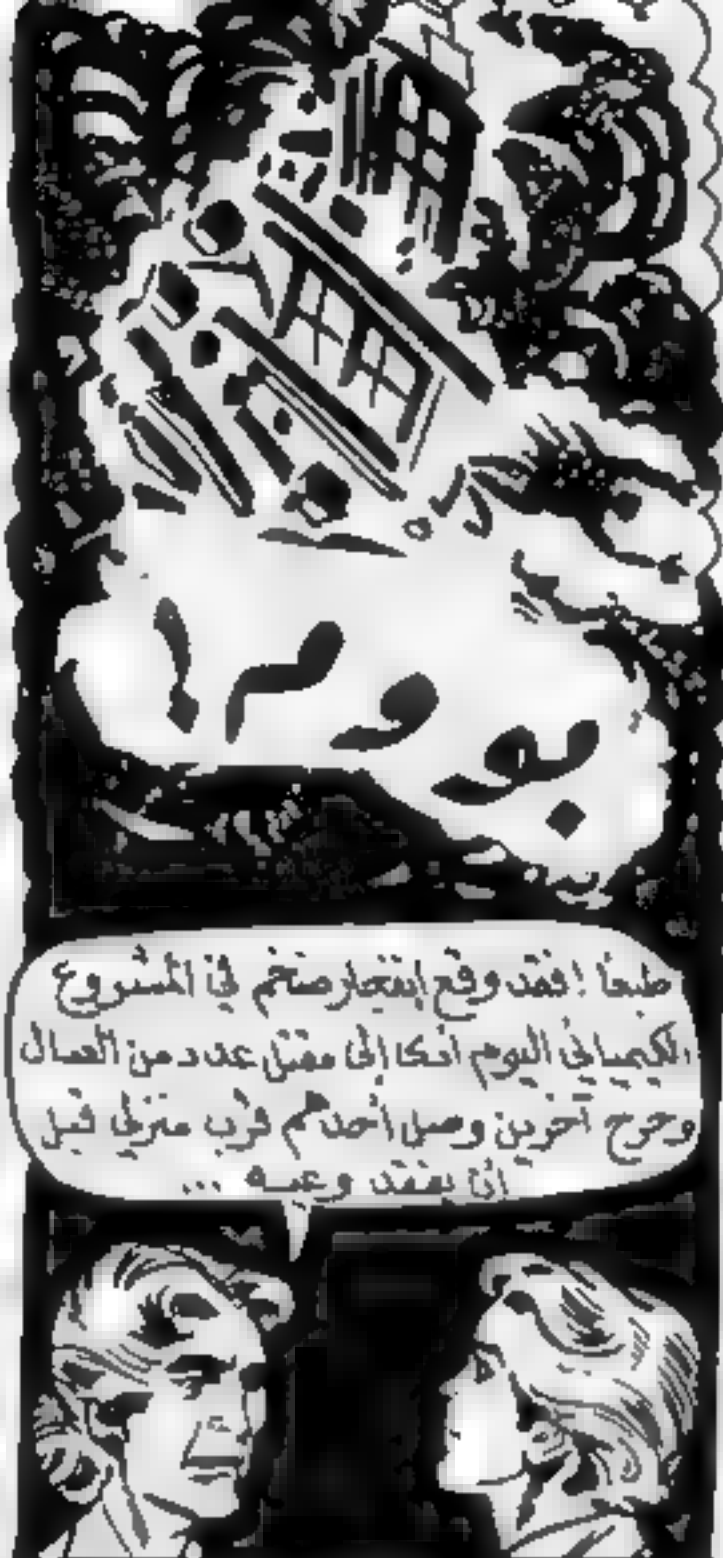 بووم!
طبعًا! فقد وقع إنفجار ضخم في المشروع
الكيميائي اليوم أدى إلى مقتل عدد من العمال
وجرح آخرين وصل أحدهم قرب منزلي قبل
أن يفقد وعيه ...